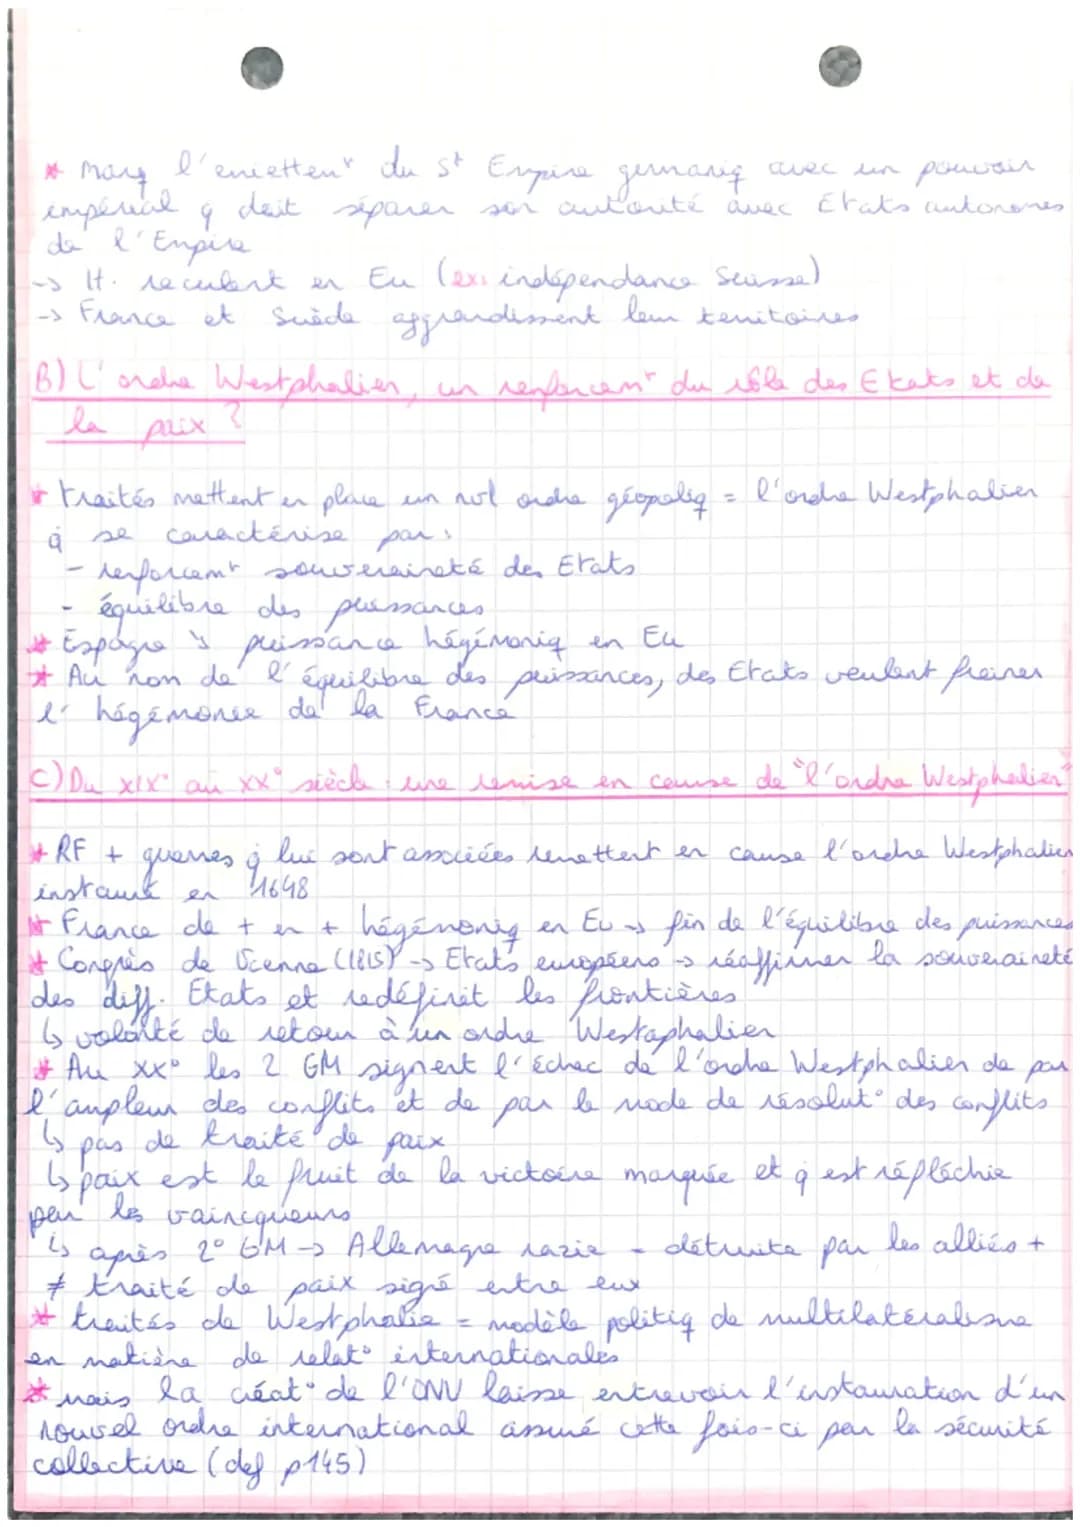 * marq l'emiettemt du St Empire germaniq avec un pouvoir
impérial q doit séparer son autorité avec Etats autonomes
de l'Empire
-> H. reculent en Eu (ex: indépendance Suisse)
-> France et Suède aggrandissent leur territoires
B) L'ordre Westphalien, un renforcemt du rôle des Etats et de
la paix ?
* traités mettent en place un nvl ordre géopoliq = l'ordre Westphalien
q se caractérise par :
- renforcemt souveraineté des Etats
- équilibre des puissances
* Espagne puissance hégémoniq en Eu
* Au nom de l'équilibre des puissances, des Etats veulent freiner
l'hégémonie de la France
C) Du XIX° au XX° siècle : une remise en cause de "l'ordre Westphalien"
* RF + guerres q lui sont associées remettent en cause l'ordre Westphalien
instauré en 1648
* France de + en + hégémoniq en Eu -> fin de l'équilibre des puissances
* Congrès de Vienne (1815) -> Etats européens -> réaffirmer la souveraineté
des diff. Etats et redéfinit les frontières
↳ volonté de retour à un ordre Westaphalien
* Au XX° les 2 GM signent l'échec de l'ordre Westphalien de par
l'ampleur des conflits et de par le mode de résolut° des conflits
↳ pas de traité de paix
↳ paix est le fruit de la victoire marquée et q est réfléchie
par les vaincqueurs
↳ après 2° GM -> Allemagne nazie = détruite par les alliés +
≠ traité de paix signé entre eux
* traités de Westphalie = modèle politiq de multilatéralisme
en matière de relat° internationales
* mais la créat° de l'ONU laisse entrevoir l'instauration d'un
nouvel ordre international assuré cette fois-ci par la sécurité
collective (def p145)